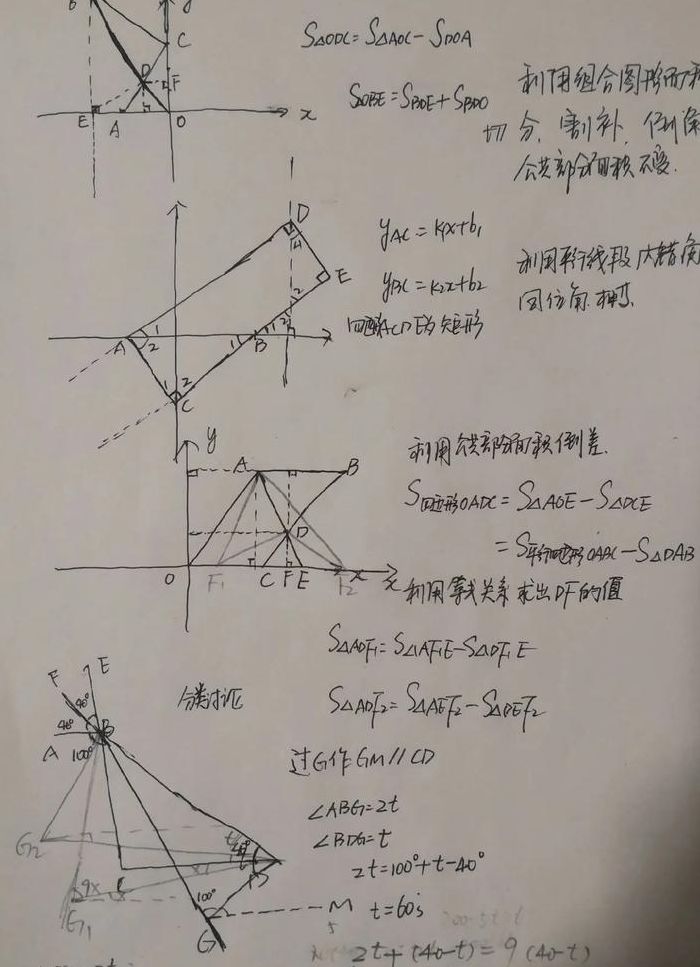 S△ODC = S△AOC - SDOA
S△OBE = SBDE + SBDO
利用组合图形面积
切分, 割补, 倒
公共部分面积不变.
yAC = k1x+b1
yBC = k2x+b2
四边形ACDE为矩形
利用平行线段内错角
同位角相等
利用公共部分面积倒差.
S四边形OADC = S△AOE - S△DCE
= S平行四边形OABC - S△DAB
利用等式关系求出DF的值
S△ADF1 = S△AF1E - S△DF1E
S△ADF2 = S△AEF2 - S△DEF2
分类讨论
过G作GM//CD
∠ABG=2t
∠BDG=t
2t=100°+t-40°
t=60s
2t+(40-t)=9(40-t)
B
y
C
D
F
E
A
O
x
D
E
A
1
2
B
C
y
A
B
D
O
F1
C
F
E
F2
x
F
E
40°
40°
B
A
100°
G2
G1
9x
100°
D
G
M